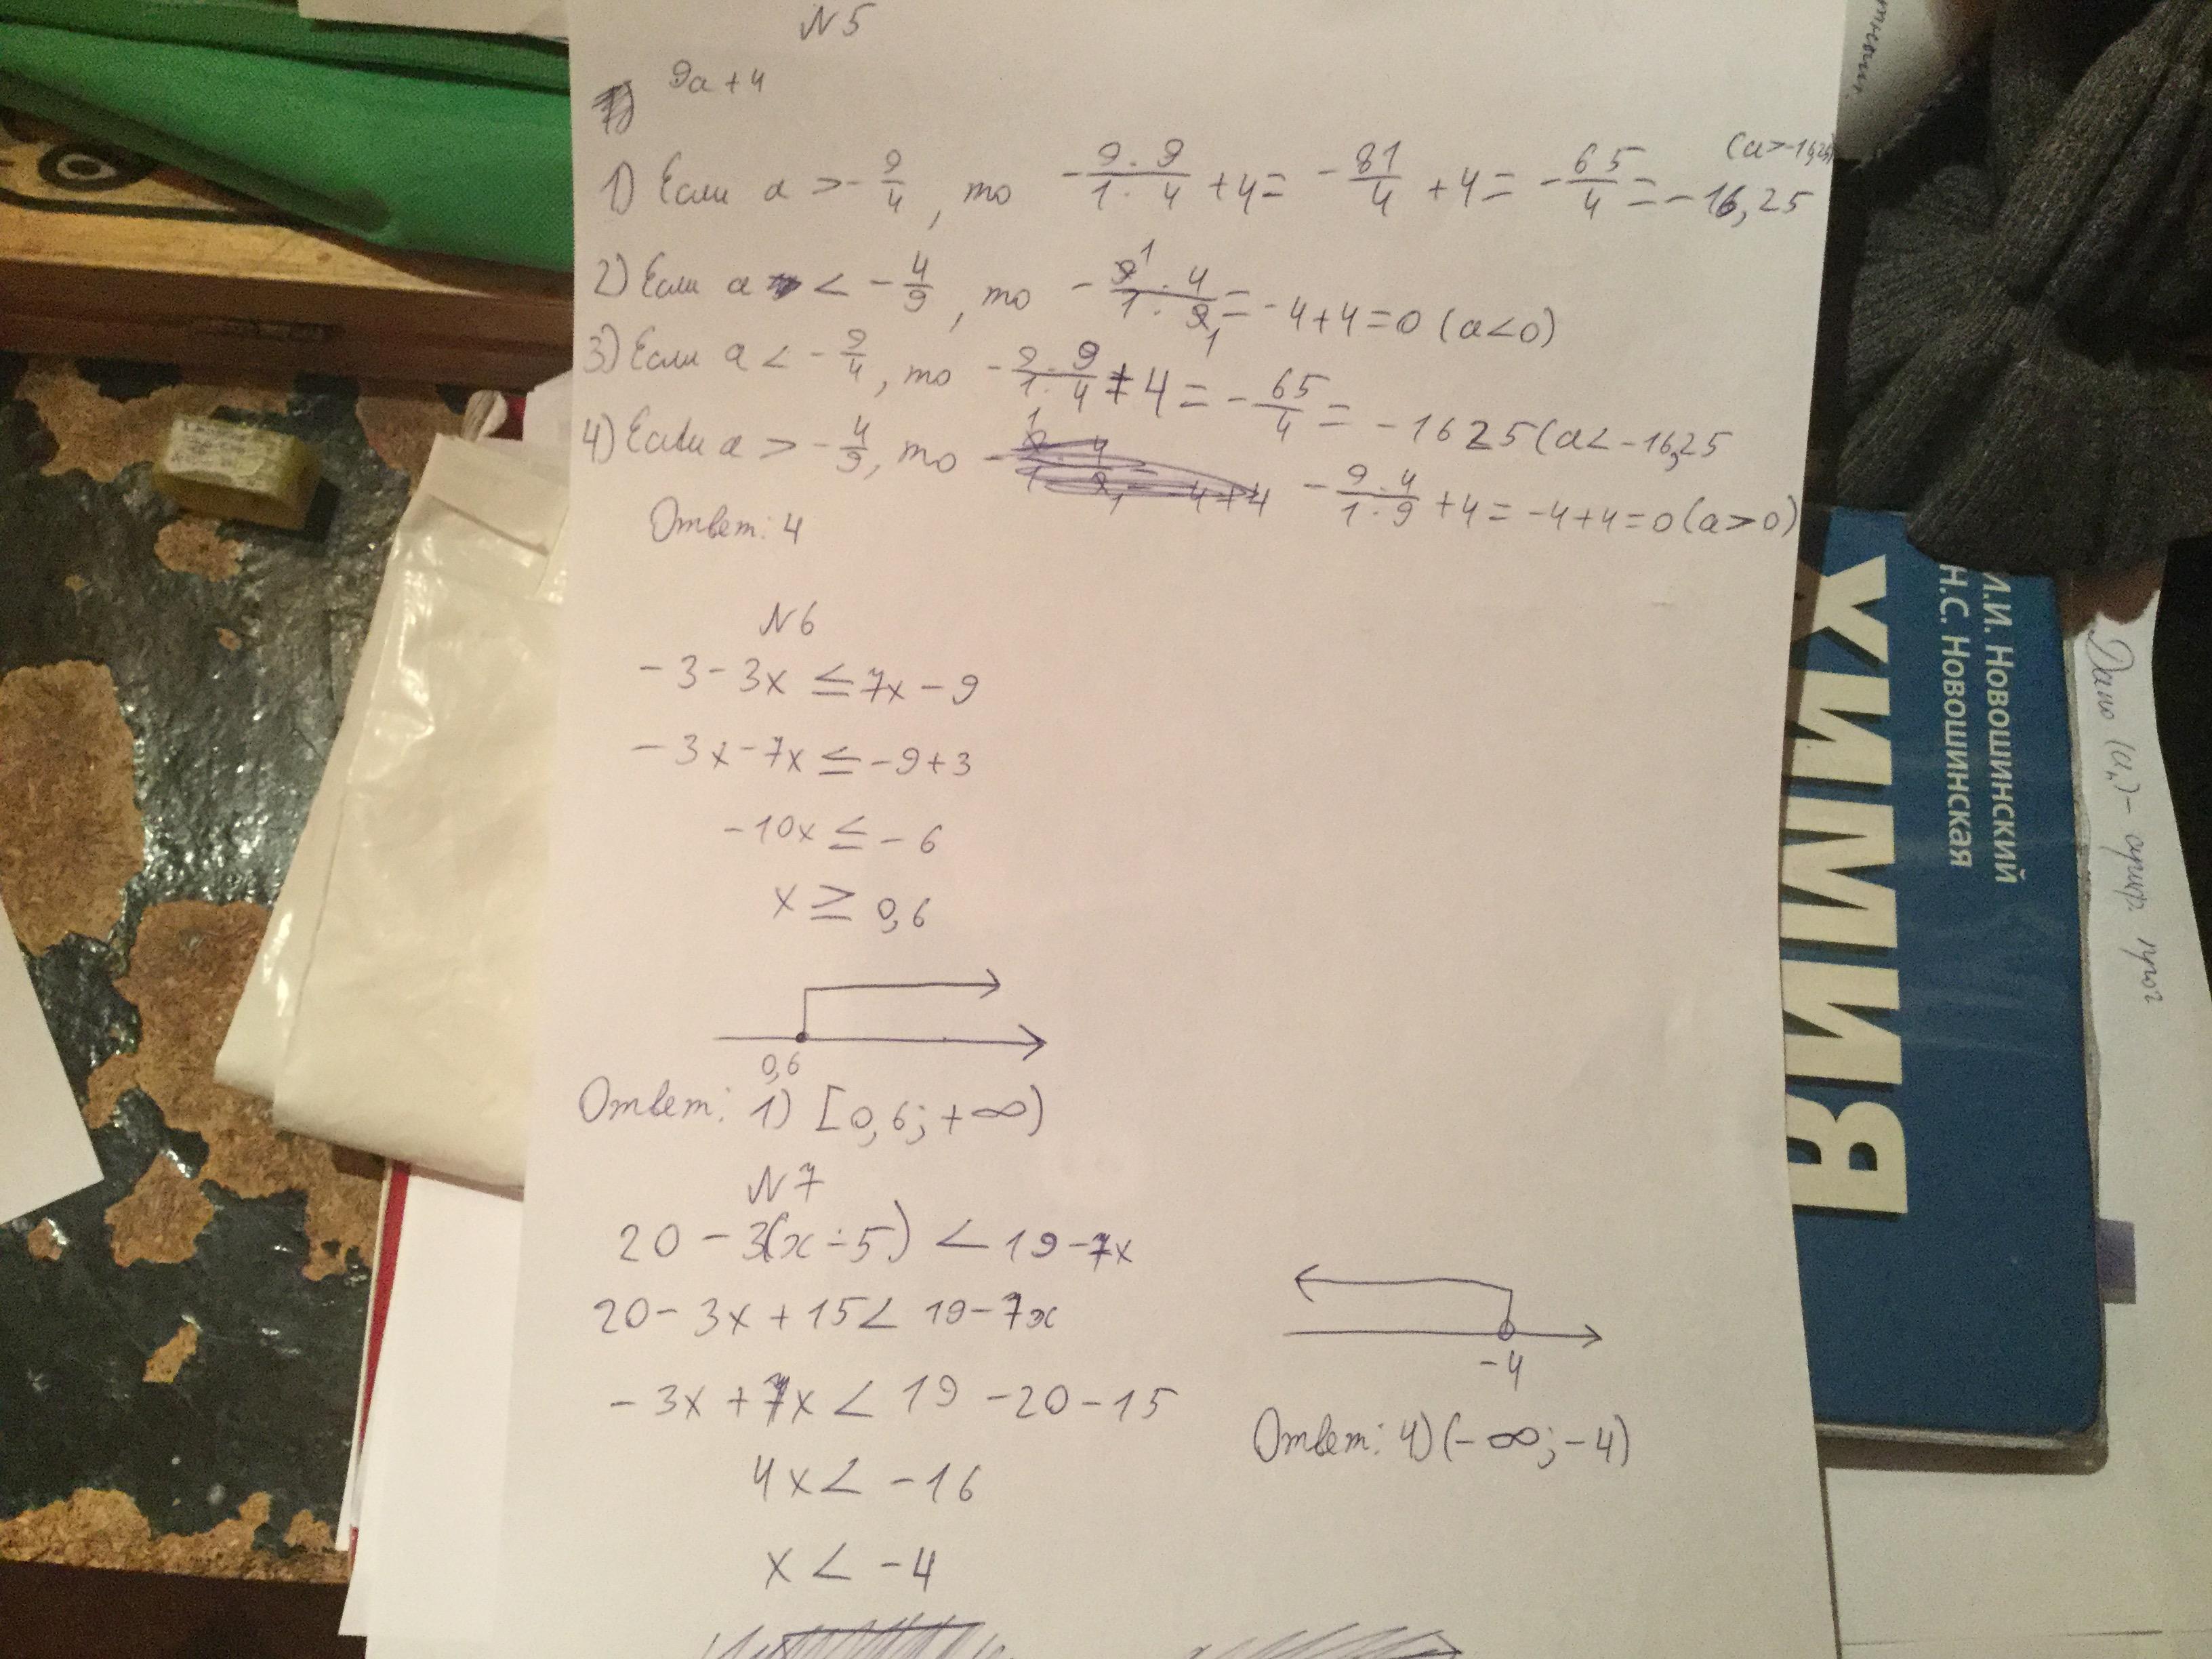 N5
9a + 4
1) Если a > - 9/4, то - 9·9/1·4 + 4 = - 81/4 + 4 = - 65/4 = - 16,25 (a > -16,25)
2) Если a < - 4/9, то - 9·4/1·9 = - 4 + 4 = 0 (a < 0)
3) Если a < - 9/4, то - 9·9/1·4 + 4 = - 65/4 = - 1625 (a < - 16,25
4) Если a > - 4/9, то - 9·4/1·9 + 4 = - 4 + 4 = 0 (a > 0)
Ответ: 4
N6
- 3 - 3x ≤ 7x - 9
- 3x - 7x ≤ - 9 + 3
- 10x ≤ - 6
x ≥ 0,6
0,6
Ответ: 1) [0,6; + ∞)
N7
20 - 3(x - 5) < 19 - 7x
20 - 3x + 15 < 19 - 7x
- 3x + 7x < 19 - 20 - 15
4x < - 16
x < - 4
- 4
Ответ: 4) (- ∞; - 4)
ХИМИЯ
И.И. Новошинский
Н.С. Новошинская
Дано (aₙ) -